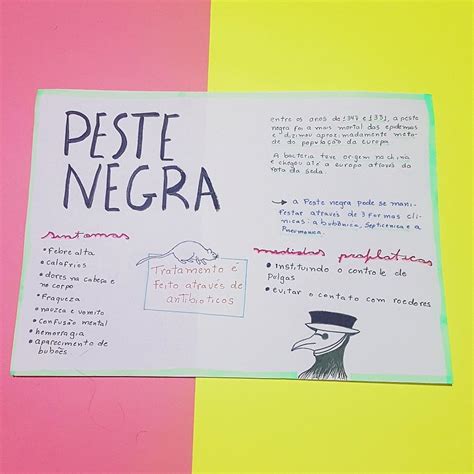 PESTE
NEGRA
entre os anos de 1347 e 1351, a peste
negra foi a mais mortal das epidemias
e dizimou aproximadamente meta-
de da população da europa.
A bactéria teve origem na china
e chegou até a europa através da
rota da seda.
→ a Peste negra pode se mani-
festar através de 3 formas clí-
nicas: a bubônica, Septicemica e a
Pneumonica.
sintomas
• Febre alta
• calafrios
• dores na cabeça e
no corpo
• Fraqueza
• nauzea e vomito
• confusão mental
• hemorragia
• aparecimento de
bubões
Tratamento é
feito através de
antibioticos
medidas profiláticas
• Instituindo o controle de
Pulgas
• evitar o contato com roedores